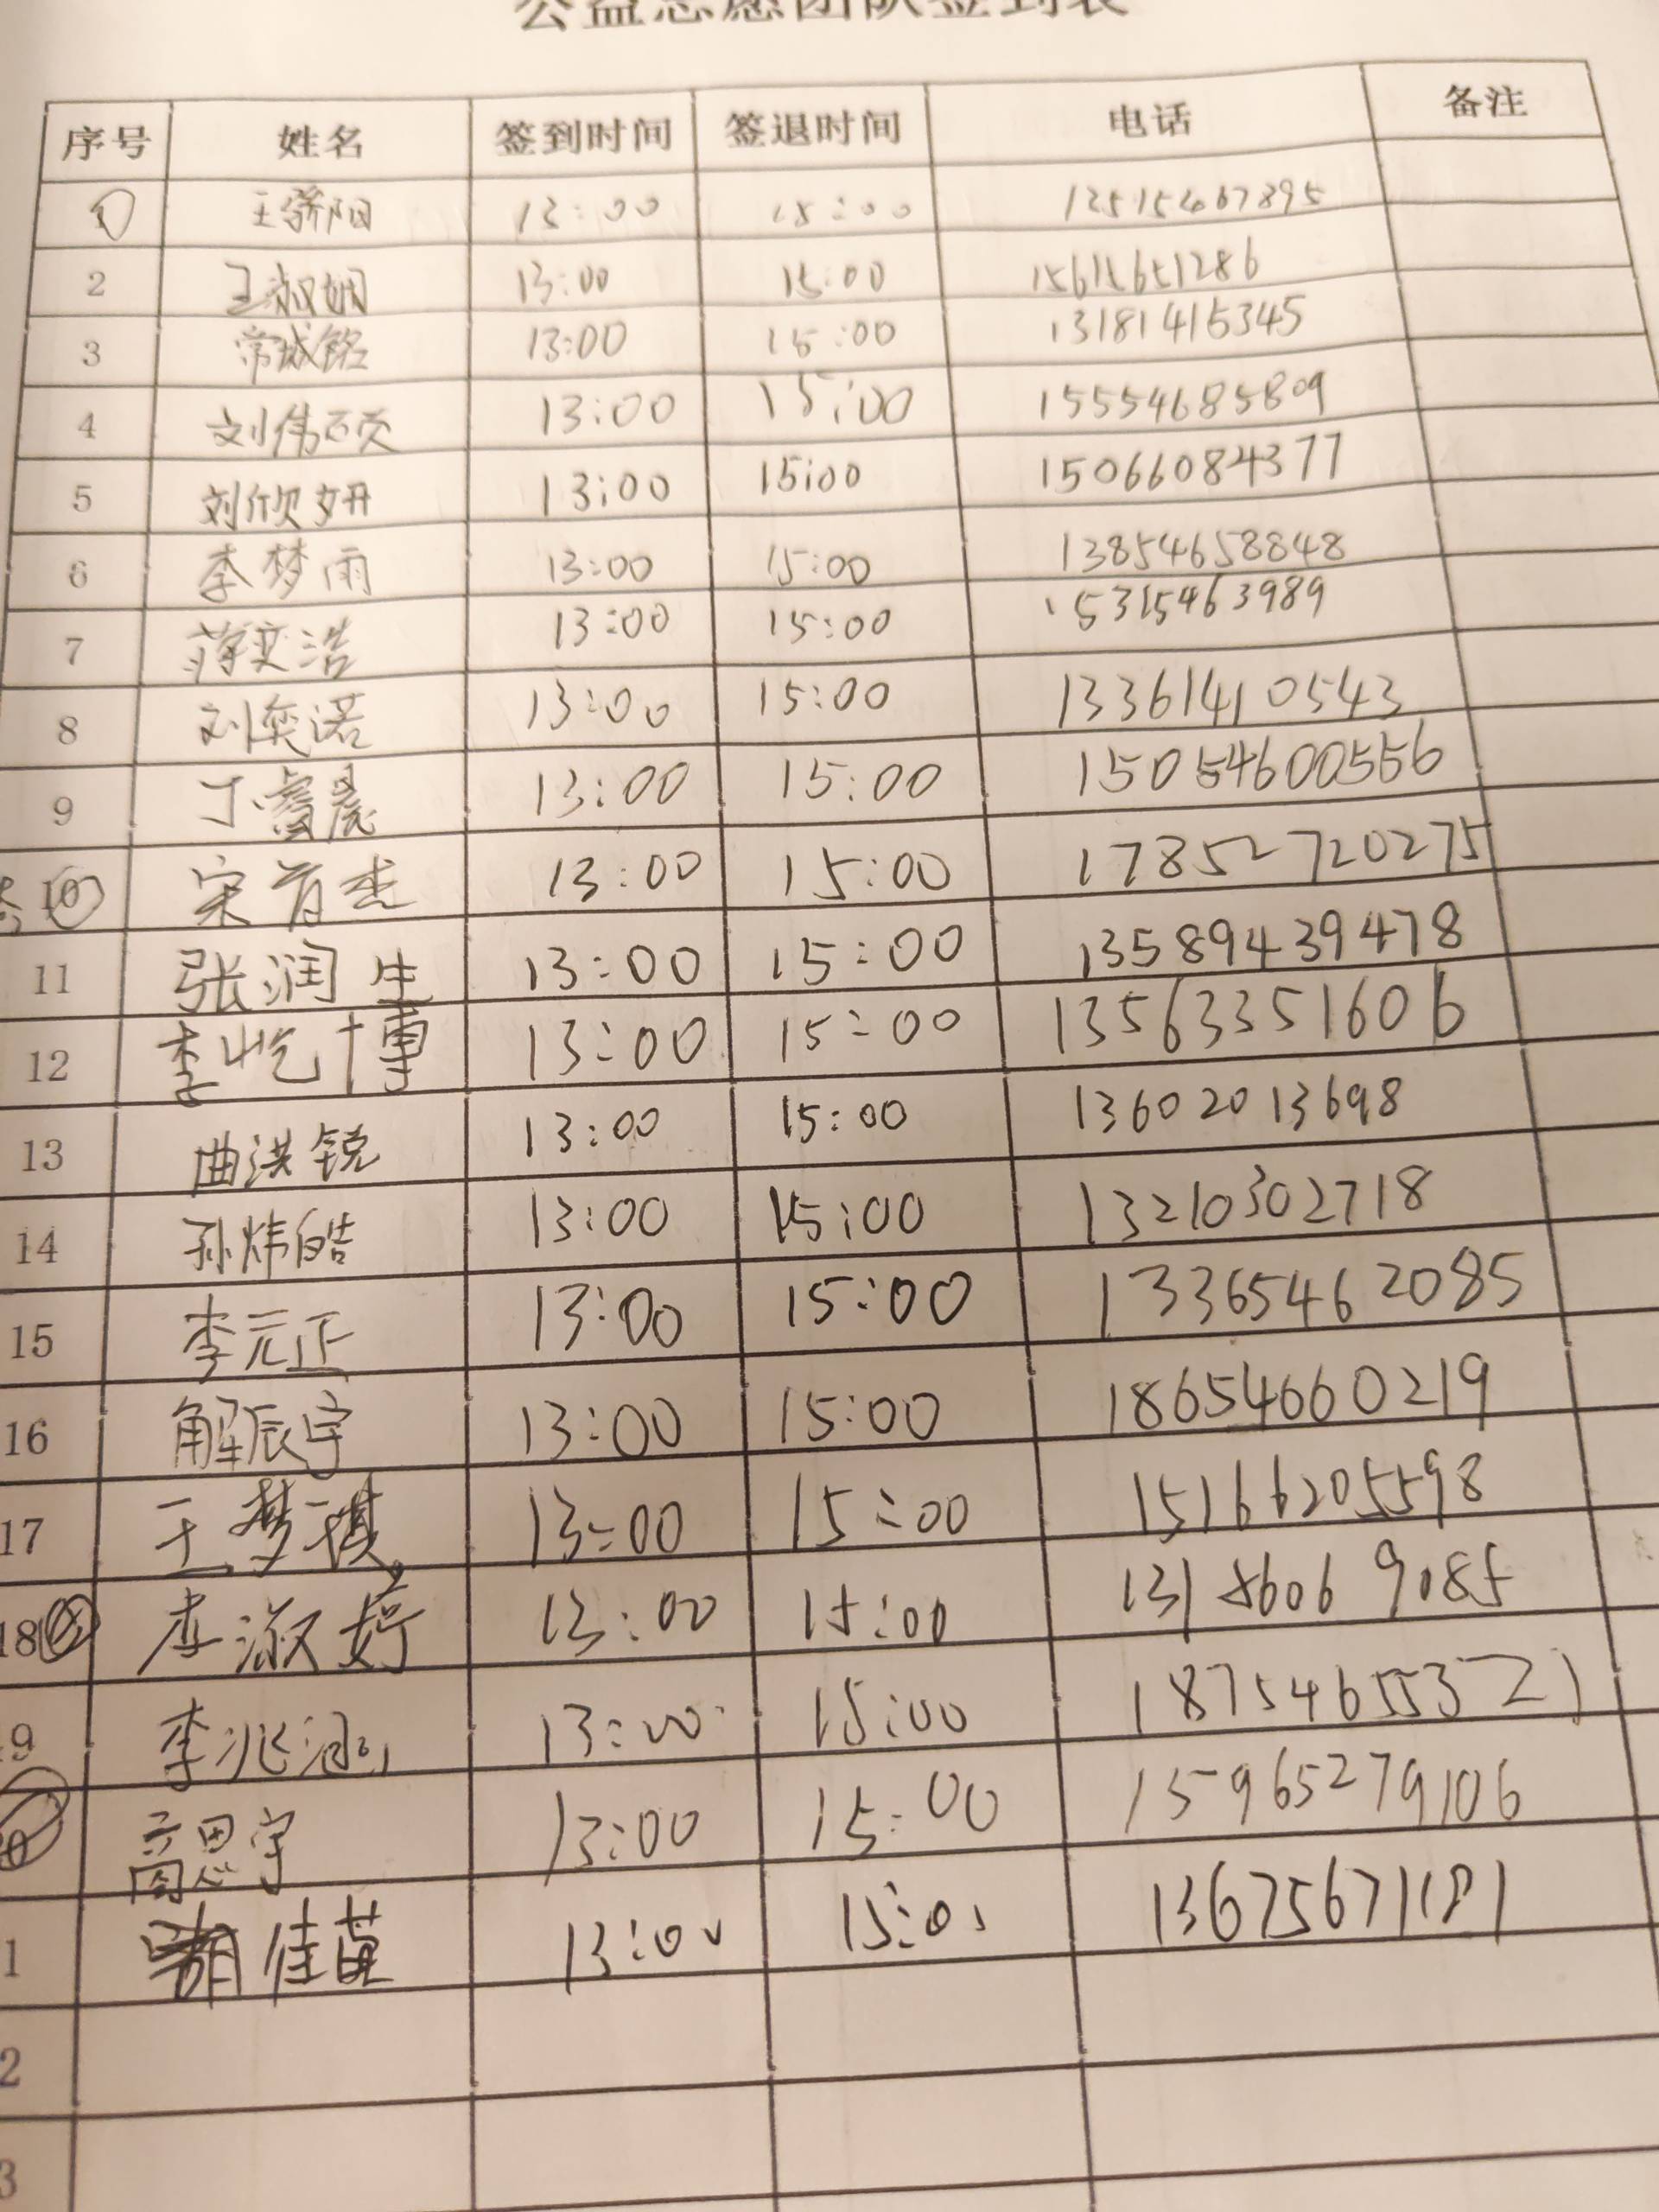 公益志愿团队签到表
序号 姓名 签到时间 签退时间 电话 备注
1 王骄阳 13:00 15:00
2 王淑娴 13:00 15:00
3 常城铭 13:00 15:00 13181415345
4 刘伟硕 13:00 15:00 15554685809
5 刘欣妍 13:00 15:00 15066084377
6 李梦雨 13:00 15:00 13854658848
7 薄奕浩 13:00 15:00 15315463989
8 刘奕诺 13:00 15:00 13361410543
9 丁睿晨 13:00 15:00 15054600556
10 宋肖杰 13:00 15:00 17852720275
11 张润生 13:00 15:00 13589439478
12 李屹博 13:00 15:00 13563351606
13 曲洪锐 13:00 15:00 13602013698
14 孙炜皓 13:00 15:00 13210302718
15 李元正 13:00 15:00 13365462085
16 解辰宇 13:00 15:00 18654660219
17 王梦祺 13:00 15:00 15166205598
18 李淑婷 13:00 15:00 13186069085
19 李兆涵 13:00 15:00 18754655321
商思宇 13:00 15:00 15965279106
1 佳苗 13:00 15:00 13675671181
2
3